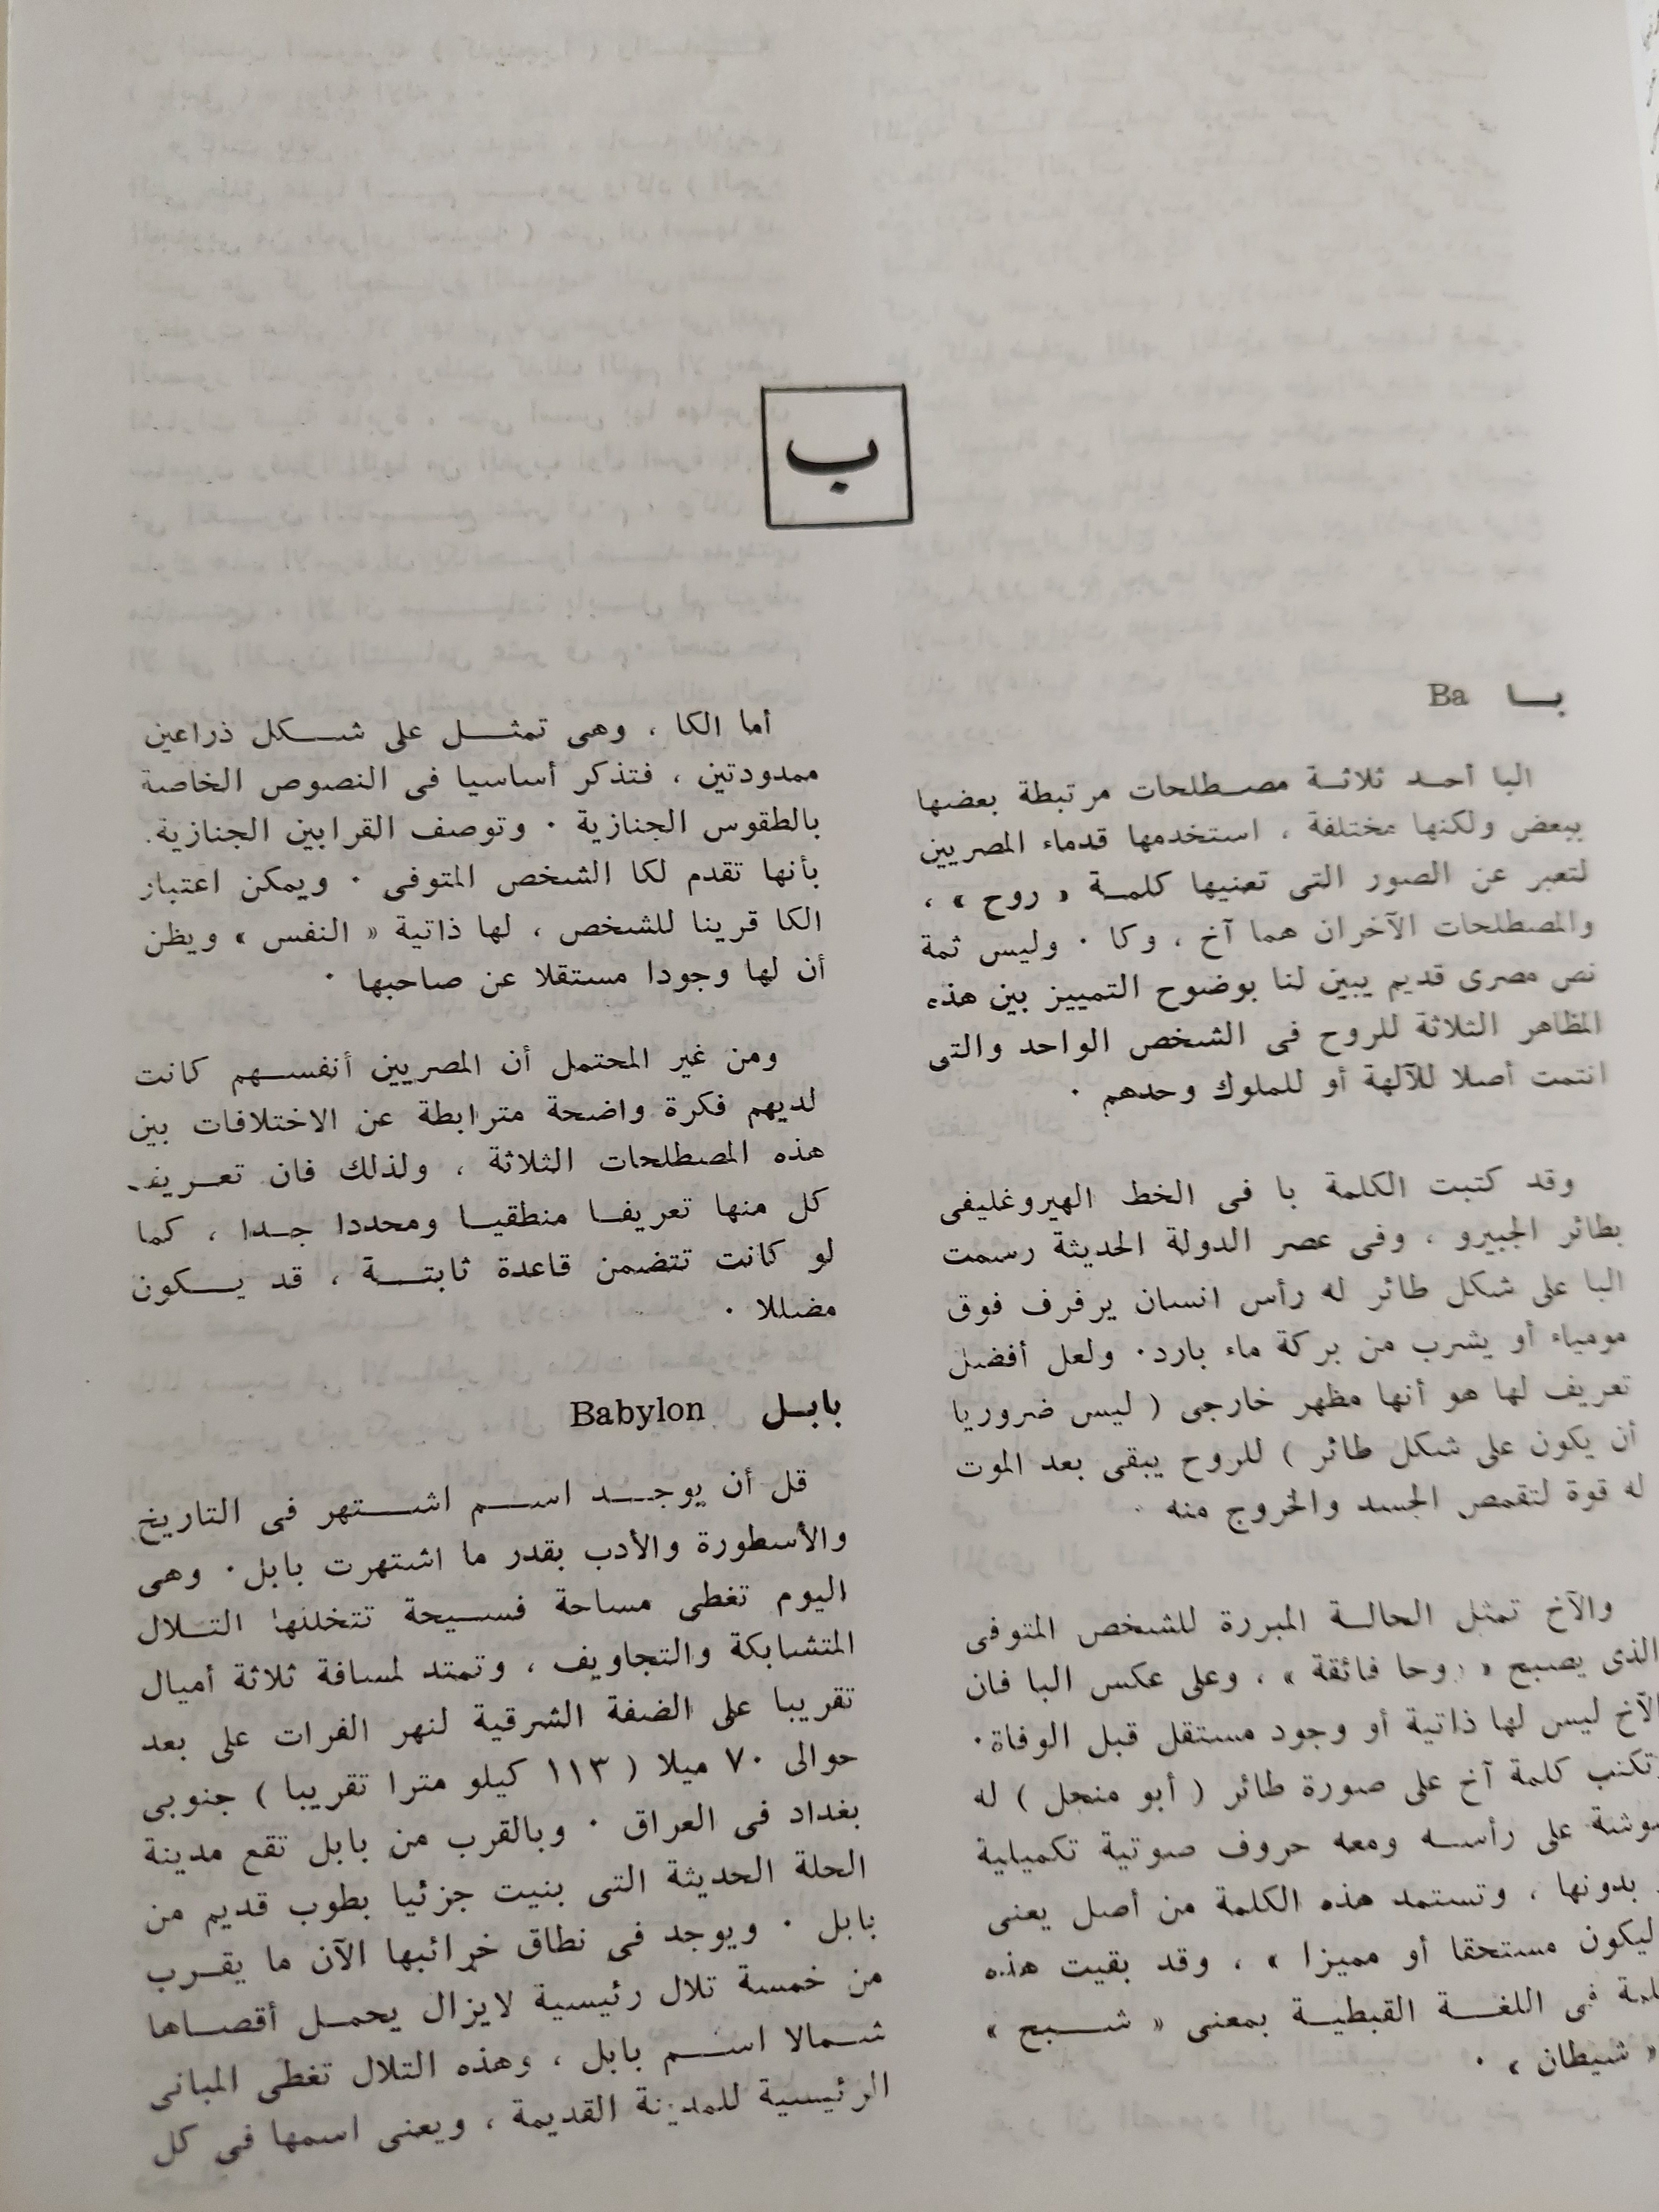 ب
بــا Ba
البا أحــد ثلاثــة مصــطلحات مرتبطة بعضها
ببعض ولكنها مختلفة ، استخدمها قدماء المصريين
لتعبر عن الصور التى تعنيها كلمــة « روح » ،
والمصطلحات الآخران هما آخ ، وكا ٠ وليس ثمة
نص مصرى قديم يبين لنا بوضوح التمييز بين هذه
المظاهر الثلاثة للروح فى الشخص الواحد والتى
انتمت أصلا للآلهة أو للملوك وحدهم ٠
وقد كتبت الكلمة با فى الخط الهيروغليفى
بطائر الجبيرو ، وفى عصر الدولة الحديثة رسمت
البا على شكل طائر له رأس انسان يرفرف فوق
مومياء أو يشرب من بركة ماء بارد٠ ولعل أفضل
تعريف لها هو أنها مظهر خارجى ( ليس ضروريا
أن يكون على شكل طائر ) للروح يبقى بعد الموت
له قوة لتقمص الجسد والخروج منه ٠
والآخ تمثل الحالــة المبررة للشخص المتوفى
الذى يصبح « روحا فائقة » ، وعلى عكس البا فان
الآخ ليس لها ذاتية أو وجود مستقل قبل الوفاة٠
وتكتب كلمة آخ على صورة طائر ( أبو منجل ) له
شوشة على رأســه ومعه حروف صوتية تكميلية
بدونها ، وتستمد هذه الكلمة من أصل يعنى
ليكون مستحقا أو مميزا » ، وقد بقيت هذه
فى اللغــة القبطيــة بمعنى « شــبح »
« شيطان » ٠
أما الكا ، وهى تمثــل على شــكل ذراعين
ممدودتين ، فتذكر أساسيا فى النصوص الخاصة
بالطقوس الجنازية ٠ وتوصف القرابين الجنازية
بأنها تقدم لكا الشخص المتوفى ٠ ويمكن اعتبار
الكا قرينا للشخص ، لها ذاتية « النفس » ويظن
أن لها وجودا مستقلا عن صاحبها ٠
ومن غير المحتمل أن المصريين أنفســهم كانت
لديهم فكرة واضحة مترابطة عن الاختلافات بين
هذه المصطلحات الثلاثة ، ولذلك فان تعــريف
كل منها تعريفــا منطقيــا ومحددا جــدا ، كما
لو كانت تتضمن قاعدة ثابتــة ، قد يــكون
مضللا ٠
بابــل Babylon
قل أن يوجــد اســم اشــتهر فى التاريخ
والأسطورة والأدب بقدر ما اشتهرت بابل٠ وهى
اليوم تغطى مساحة فســيحة تتخللها التــلال
المتشابكة والتجاويف ، وتمتد لمسافة ثلاثة أميال
تقريبا على الضفة الشرقية لنهر الفرات على بعد
حوالى ٧٠ ميلا ( ١١٣ كيلو مترا تقريبا ) جنوبى
بغداد فى العراق ٠ وبالقرب من بابل تقع مدينة
الحلة الحديثة التى بنيت جزئيا بطوب قديم من
بابل ٠ ويوجد فى نطاق خرائبها الآن ما يقــرب
من خمسة تلال رئيسية لايزال يحمــل أقصــاها
شــمالا اســم بابل ، وهذه التلال تغطى المبانى
الرئيسية للمدينة القديمة ، ويعنى اسمها فى كل